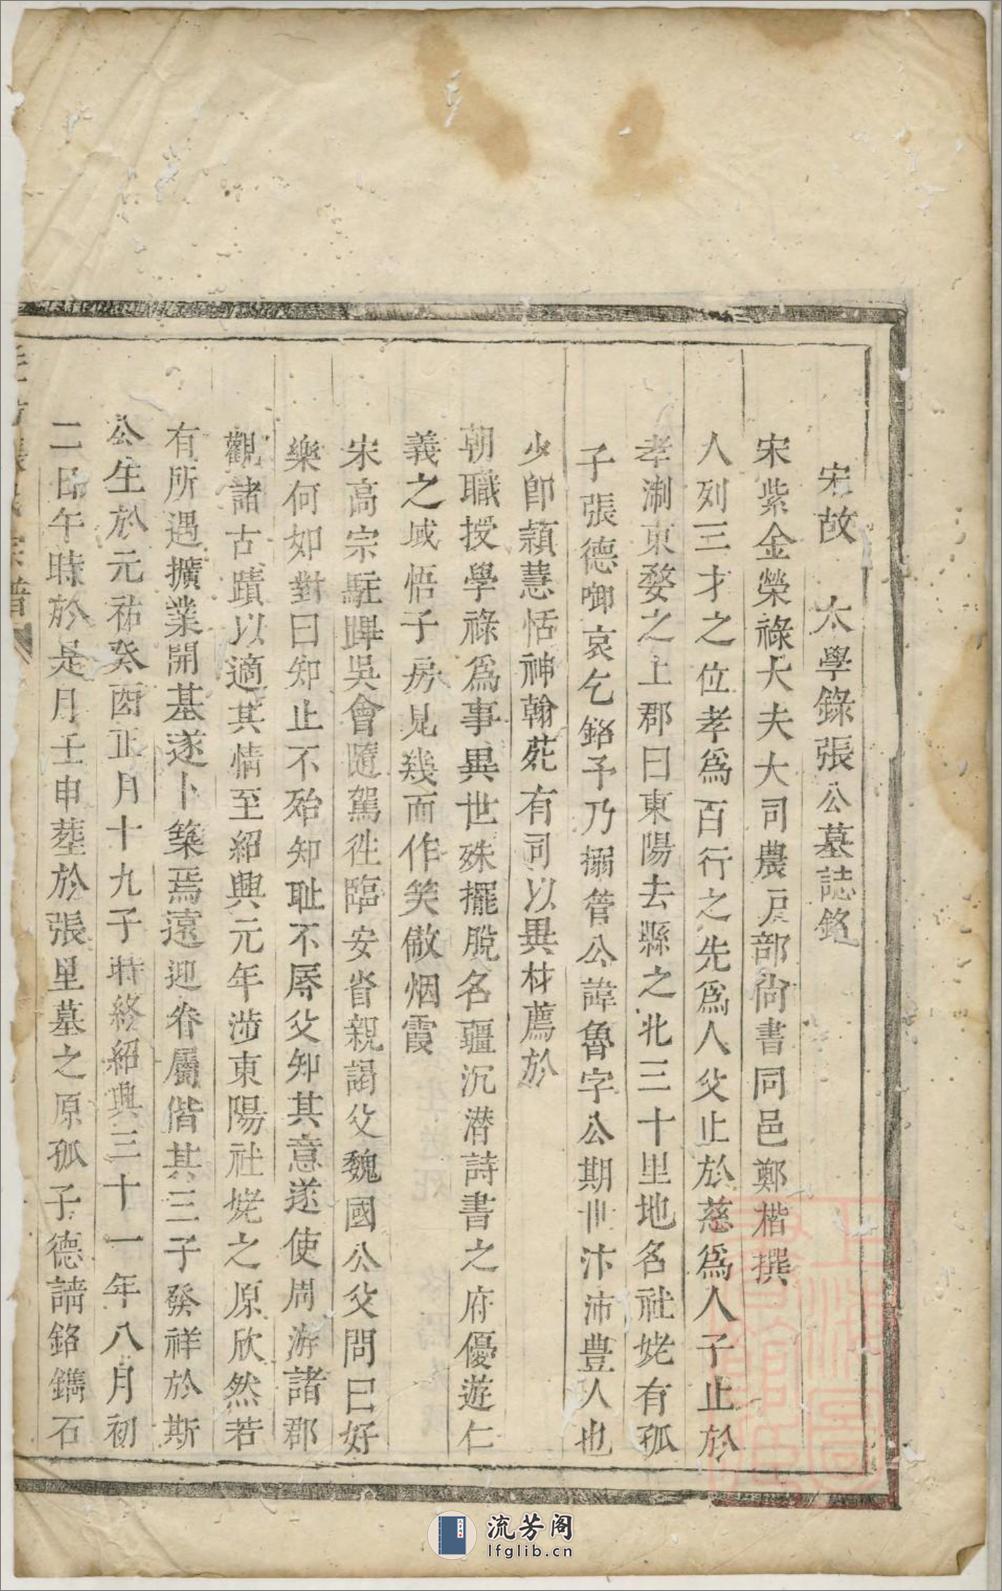 宋故　太學錄張公墓誌銘
宋紫金榮祿大夫大司農戶部尚書同邑鄭楷撰
人列三才之位孝爲百行之先爲人父止於慈爲人子止於
孝淛東婺之上郡曰東陽去縣之北三十里地名社姥有孤
子張德啣哀乞銘予乃搦管公諱魯字公期世汴沛豊人也
少卽穎慧恬神翰苑有司以異材薦於
朝職授學祿爲事異世殊擺脫名疆沉潜詩書之府優遊仁
義之域悟子房見幾而作笑傲烟霞
宋高宗駐蹕吳會隨駕徃臨安省親謁父魏國公父問曰好
樂何如對曰知止不殆知耻不辱父知其意遂使周游諸郡
觀諸古蹟以適其情至紹興元年涉東陽社姥之原欣然若
有所遇擴業開基遂卜築焉遠迎眷屬偕其三子發祥於斯
公生於元祐癸酉正月十九子時終紹興三十一年八月初
二日午時於是月壬申塟於張里墓之原孤子德請銘鐫石
張氏宗譜
流芳阁
lfglib.cn